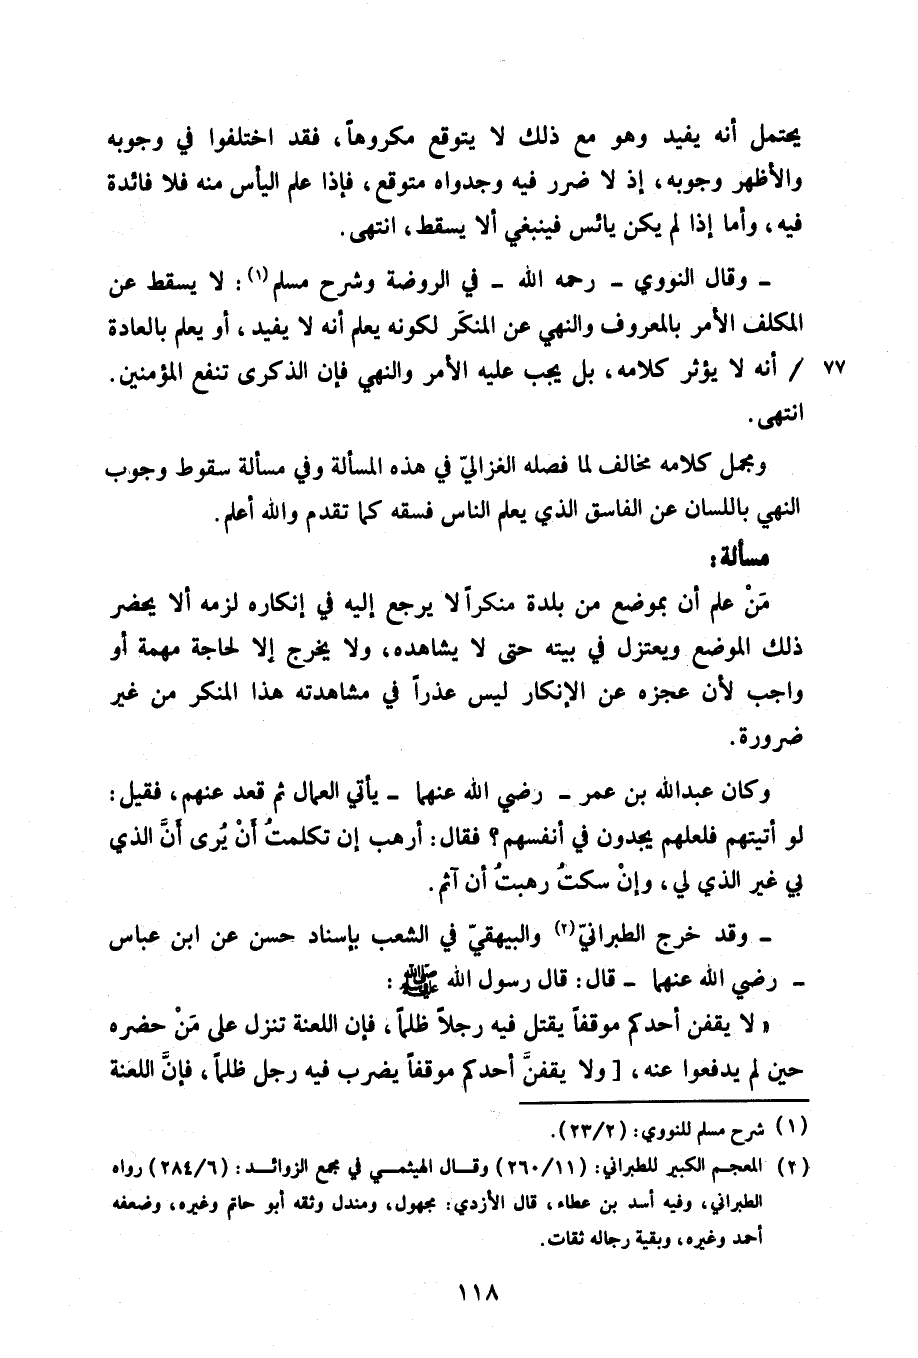 يحتمل أنه يفيد وهو مع ذلك لا يتوقع مكروهاً، فقد اختلفوا في وجوبه
والأظهر وجوبه، إذ لا ضرر فيه وجدواه متوقع، فإذا علم اليأس منه فلا فائدة
فيه، وأما إذا لم يكن يائس فينبغي ألا يسقط، انتهى.
ـ وقال النووي ـ رحمه الله ـ في الروضة وشرح مسلم(١): لا يسقط عن
المكلف الأمر بالمعروف والنهي عن المنكَر لكونه يعلم أنه لا يفيد، أو يعلم بالعادة
٧٧ / أنه لا يؤثر كلامه، بل يجب عليه الأمر والنهي فإن الذكرى تنفع المؤمنين.
انتهى.
ومجمل كلامه مخالف لما فصله الغزاليّ في هذه المسألة وفي مسألة سقوط وجوب
النهي باللسان عن الفاسق الذي يعلم الناس فسقه كما تقدم والله أعلم.
مسألة:
مَنْ علم أن بموضع من بلدة منكراً لا يرجع إليه في إنكاره لزمه ألا يحضر
ذلك الموضع ويعتزل في بيته حتى لا يشاهده، ولا يخرج إلا لحاجة مهمة أو
واجب لأن عجزه عن الإنكار ليس عذراً في مشاهدته هذا المنكر من غير
ضرورة.
وكان عبدالله بن عمر ـ رضي الله عنهما ـ يأتي العمال ثم قعد عنهم، فقيل:
لو أتيتهم فلعلهم يجدون في أنفسهم؟ فقال: أرهب إن تكلمتُ أَنْ يُرى أَنَّ الذي
بي غير الذي لي، وإنْ سكتُ رهبتُ أن آثم.
ـ وقد خرج الطبرانيّ(٢) والبيهقيّ في الشعب بإسناد حسن عن ابن عباس
ـ رضي الله عنهما ـ قال: قال رسول الله ﷺ:
« لا يقفن أحدكم موقفاً يقتل فيه رجلاً ظلماً، فإن اللعنة تنزل على مَنْ حضره
حين لم يدفعوا عنه، [ ولا يقفنَّ أحدكم موقفاً يضرب فيه رجل ظلماً، فإنَّ اللعنة
(١) شرح مسلم للنووي: (٢٣/٢).
(٢) المعجم الكبير للطبراني: (٢٦٠/١١) وقال الهيثمي في مجمع الزوائد: (٢٨٤/٦) رواه
الطبراني، وفيه أسد بن عطاء، قال الأزدي: مجهول، ومندل وثقه أبو حاتم وغيره، وضعفه
أحمد وغيره، وبقية رجاله ثقات.
١١٨